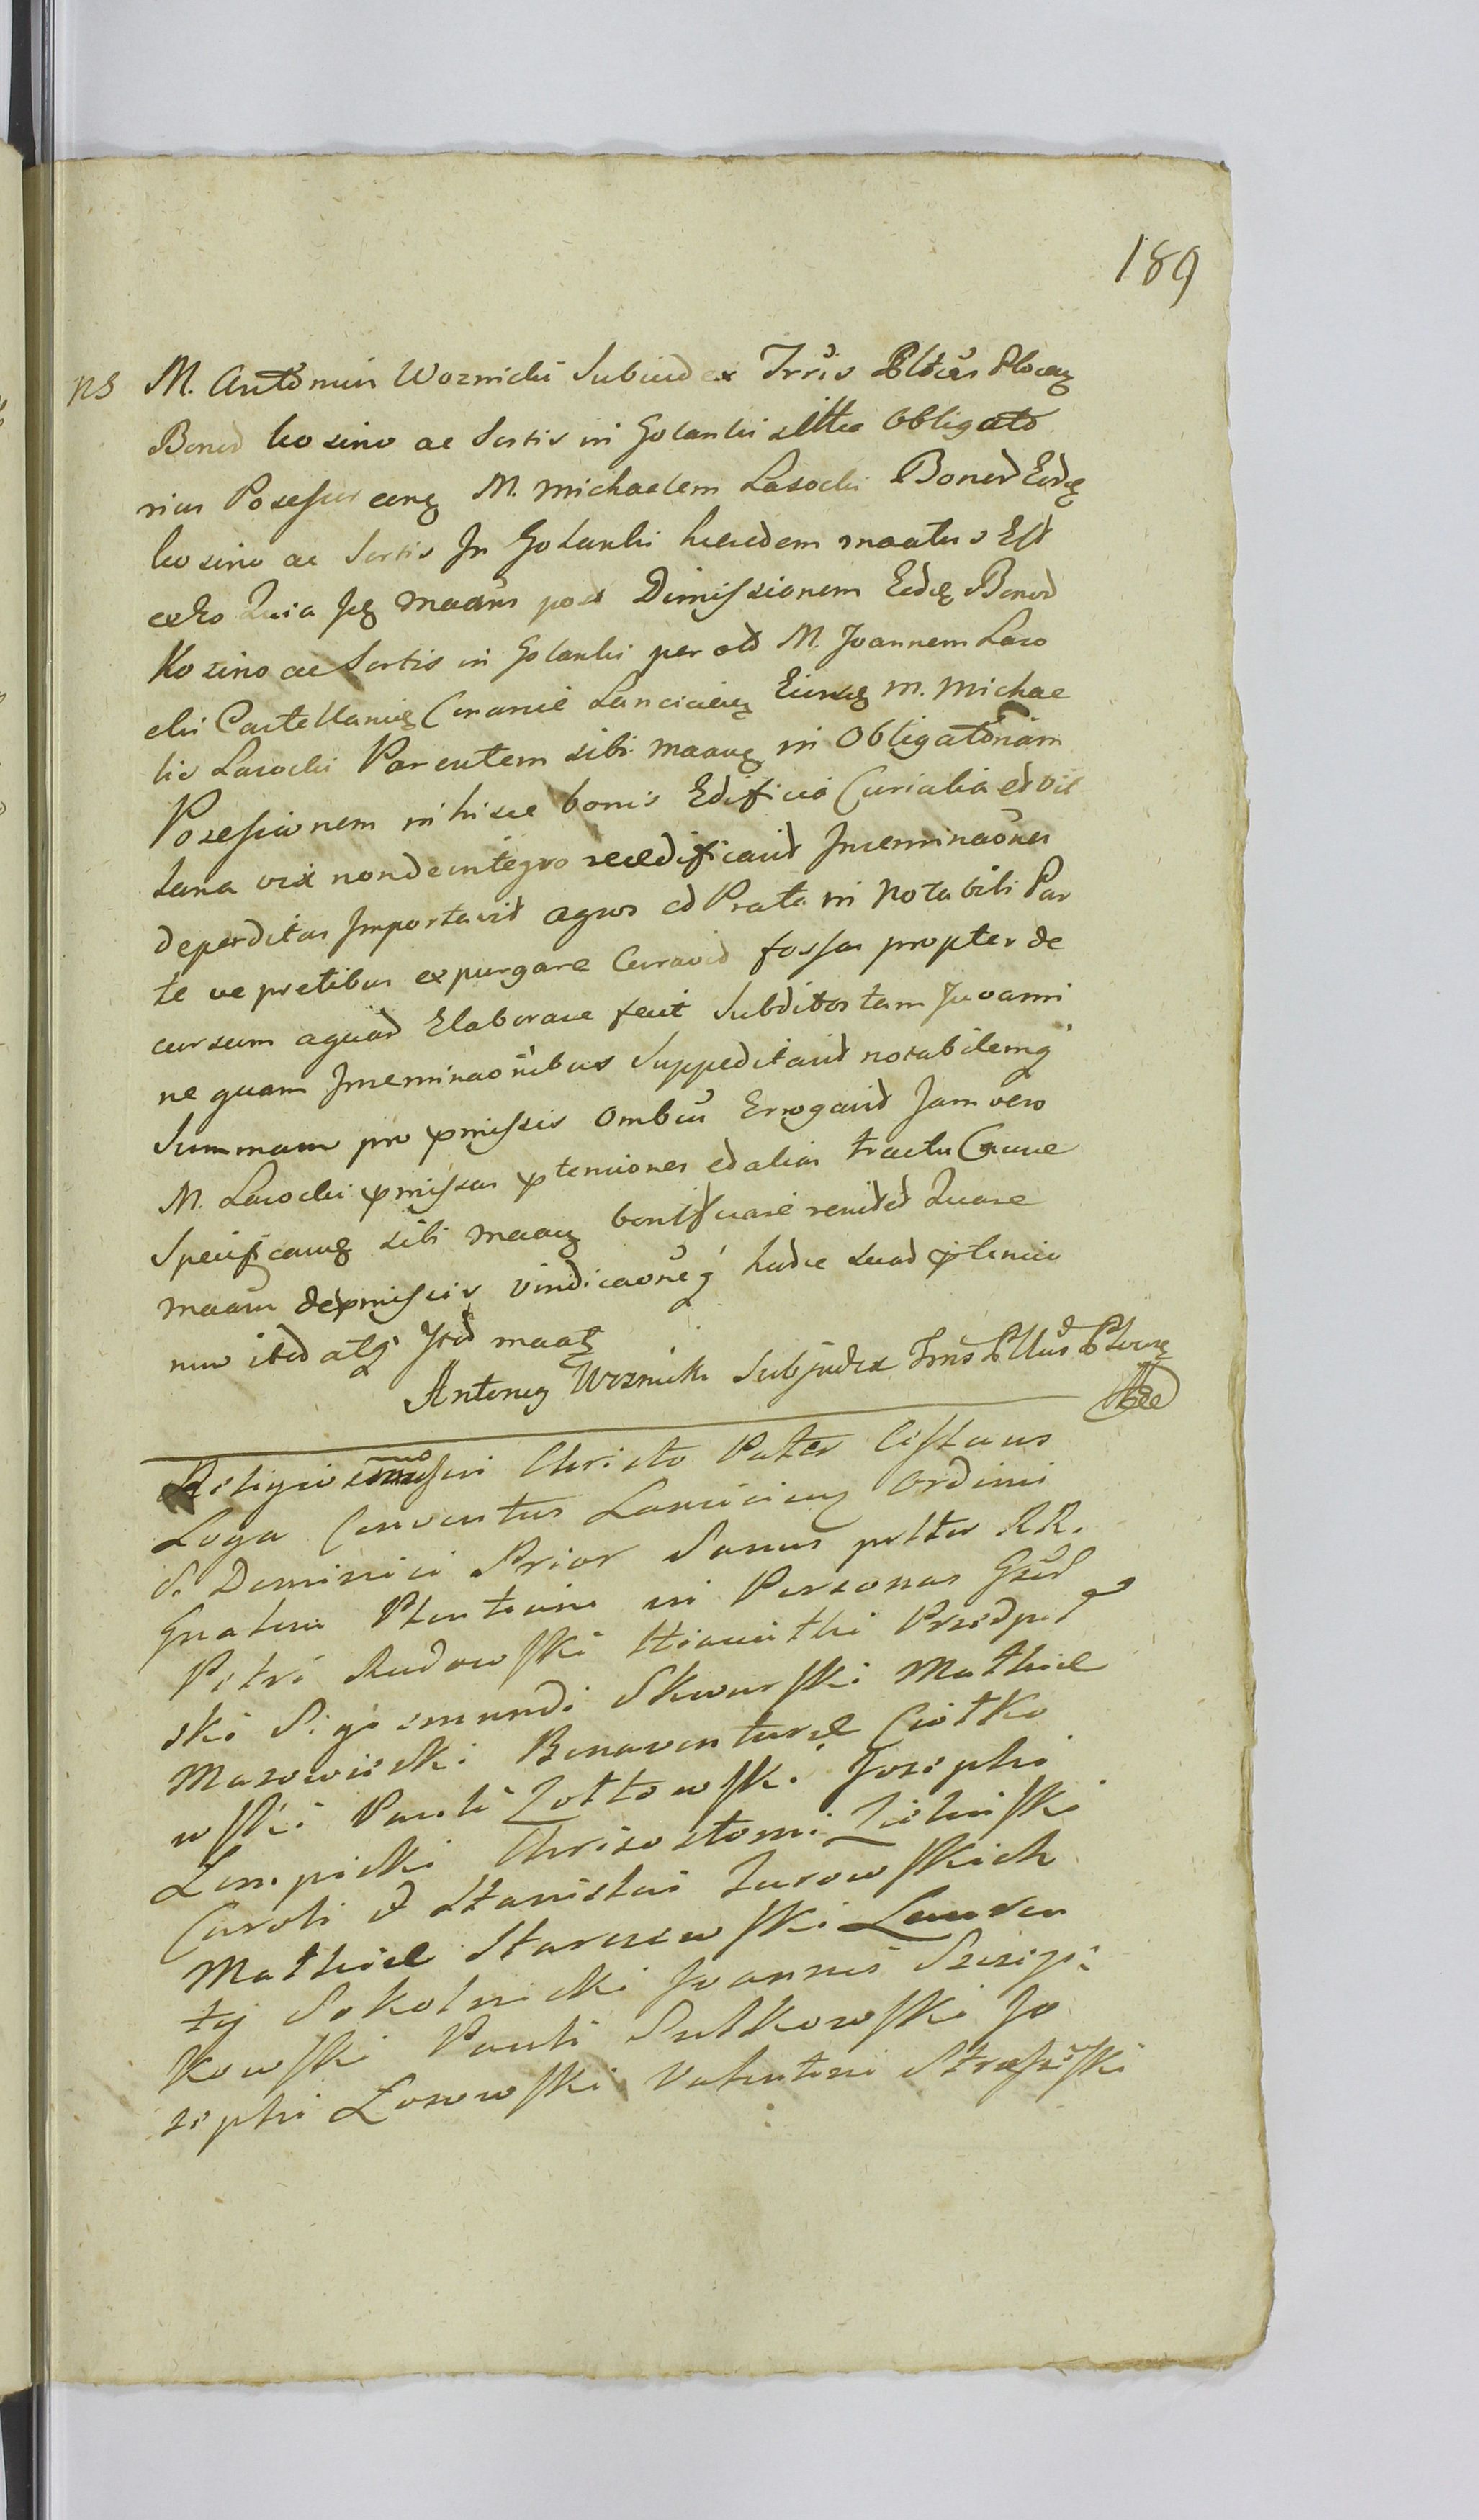 189
ns M. Antonius Woznicki Subiudex Trris Pltus Plocen
Bonor Kosino ac Sortis in Golanki altter obligato
rius Posessor conq M. Michaelem Lasocki Bonor Eorde
Kosino ac Sortis in Golanki heredem maatus Est
exho Quia Ipse maans post Dimissionem Eorde Bonor
Kosino ac Sortis in Golanki per old M. Joannem Laso
cki Castellanide Conarie Lancicien Eiusde M. Michae
lis Lasocki Parentem sibi maanq in Obligatoriam
Posessionem in hisce bonis Edificia Curialia et vil
lana vix non de integro reedificavit Inseminaones
deperditas Importavit agros et Prata in notabili Par
te vepretibus expurgare Curavit fossas propter de
cursum aquar Elaborare fecit Subditos tam Juvami
ne quam Inseminaonibus Suppeditavit notabilemq
Summam pro pmissis ombus Erogavit Jam vero
M. Lasocki pmissas ptensiones et alias tractu Cause
Specificanq sibi maanq bonificare renidet Quare
maans de pmissis vindicaoneq hisce suar ptensio
num ited atq Ited maatq
Antonius Woznicki Subjudex Trris Pltus Plocen
Religiosus in Christo Pater Cislaus
Loga Conventus Lancicien Ordinis
S. Dominici Prior Sanus pttes RR.
Gnatim Plentiam in Personas Gsd
Petri Rudowski Hiacinthi Przedpeł
ski Sigismundi Skwarski Mathie
Mazowiecki Bonaventure Ciołko
wski Pauli Zołtowski Josephi
Lempicki Chrisostomi Zielinski
Caroli et Stanislai Jurowskich
Mathie Staroszewski Lauren
tij Sokolnicki Joannis Szczepi
kowski Pauli Sulkowski Jo
sephi Losowski Valentini Straszewski